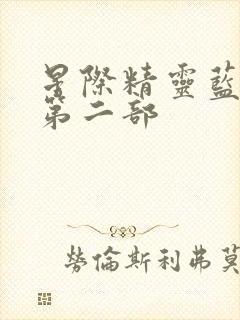 星際精靈藍
第二部
勞倫斯利弗莫